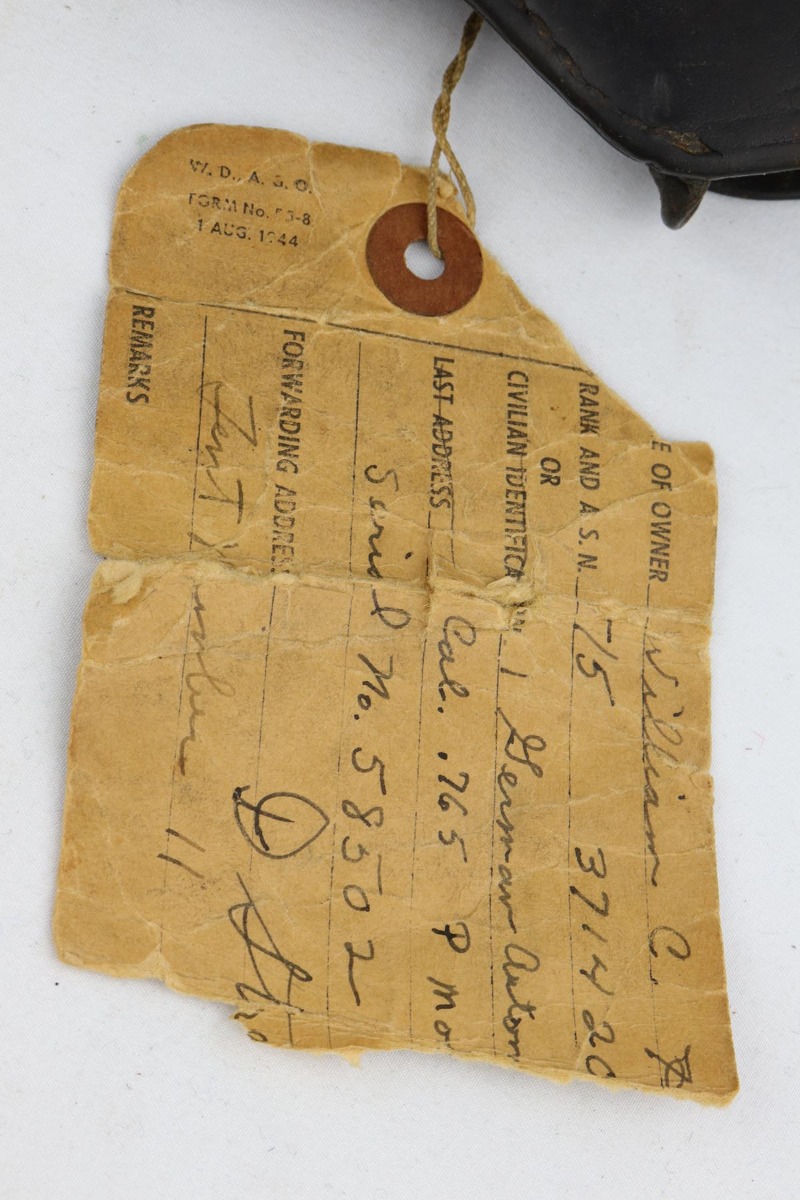 W. D., A. G. O.
FORM No.
1 AUG. 1944
E OF OWNER William C.
RANK AND A. S. N. T/5 371420
OR
CIVILIAN IDENTIFICA N 1 German Autom
LAST ADDRESS Cal. .765 P Mo
Serial No. 58502
FORWARDING ADDRES
Tent Number 11
REMARKS